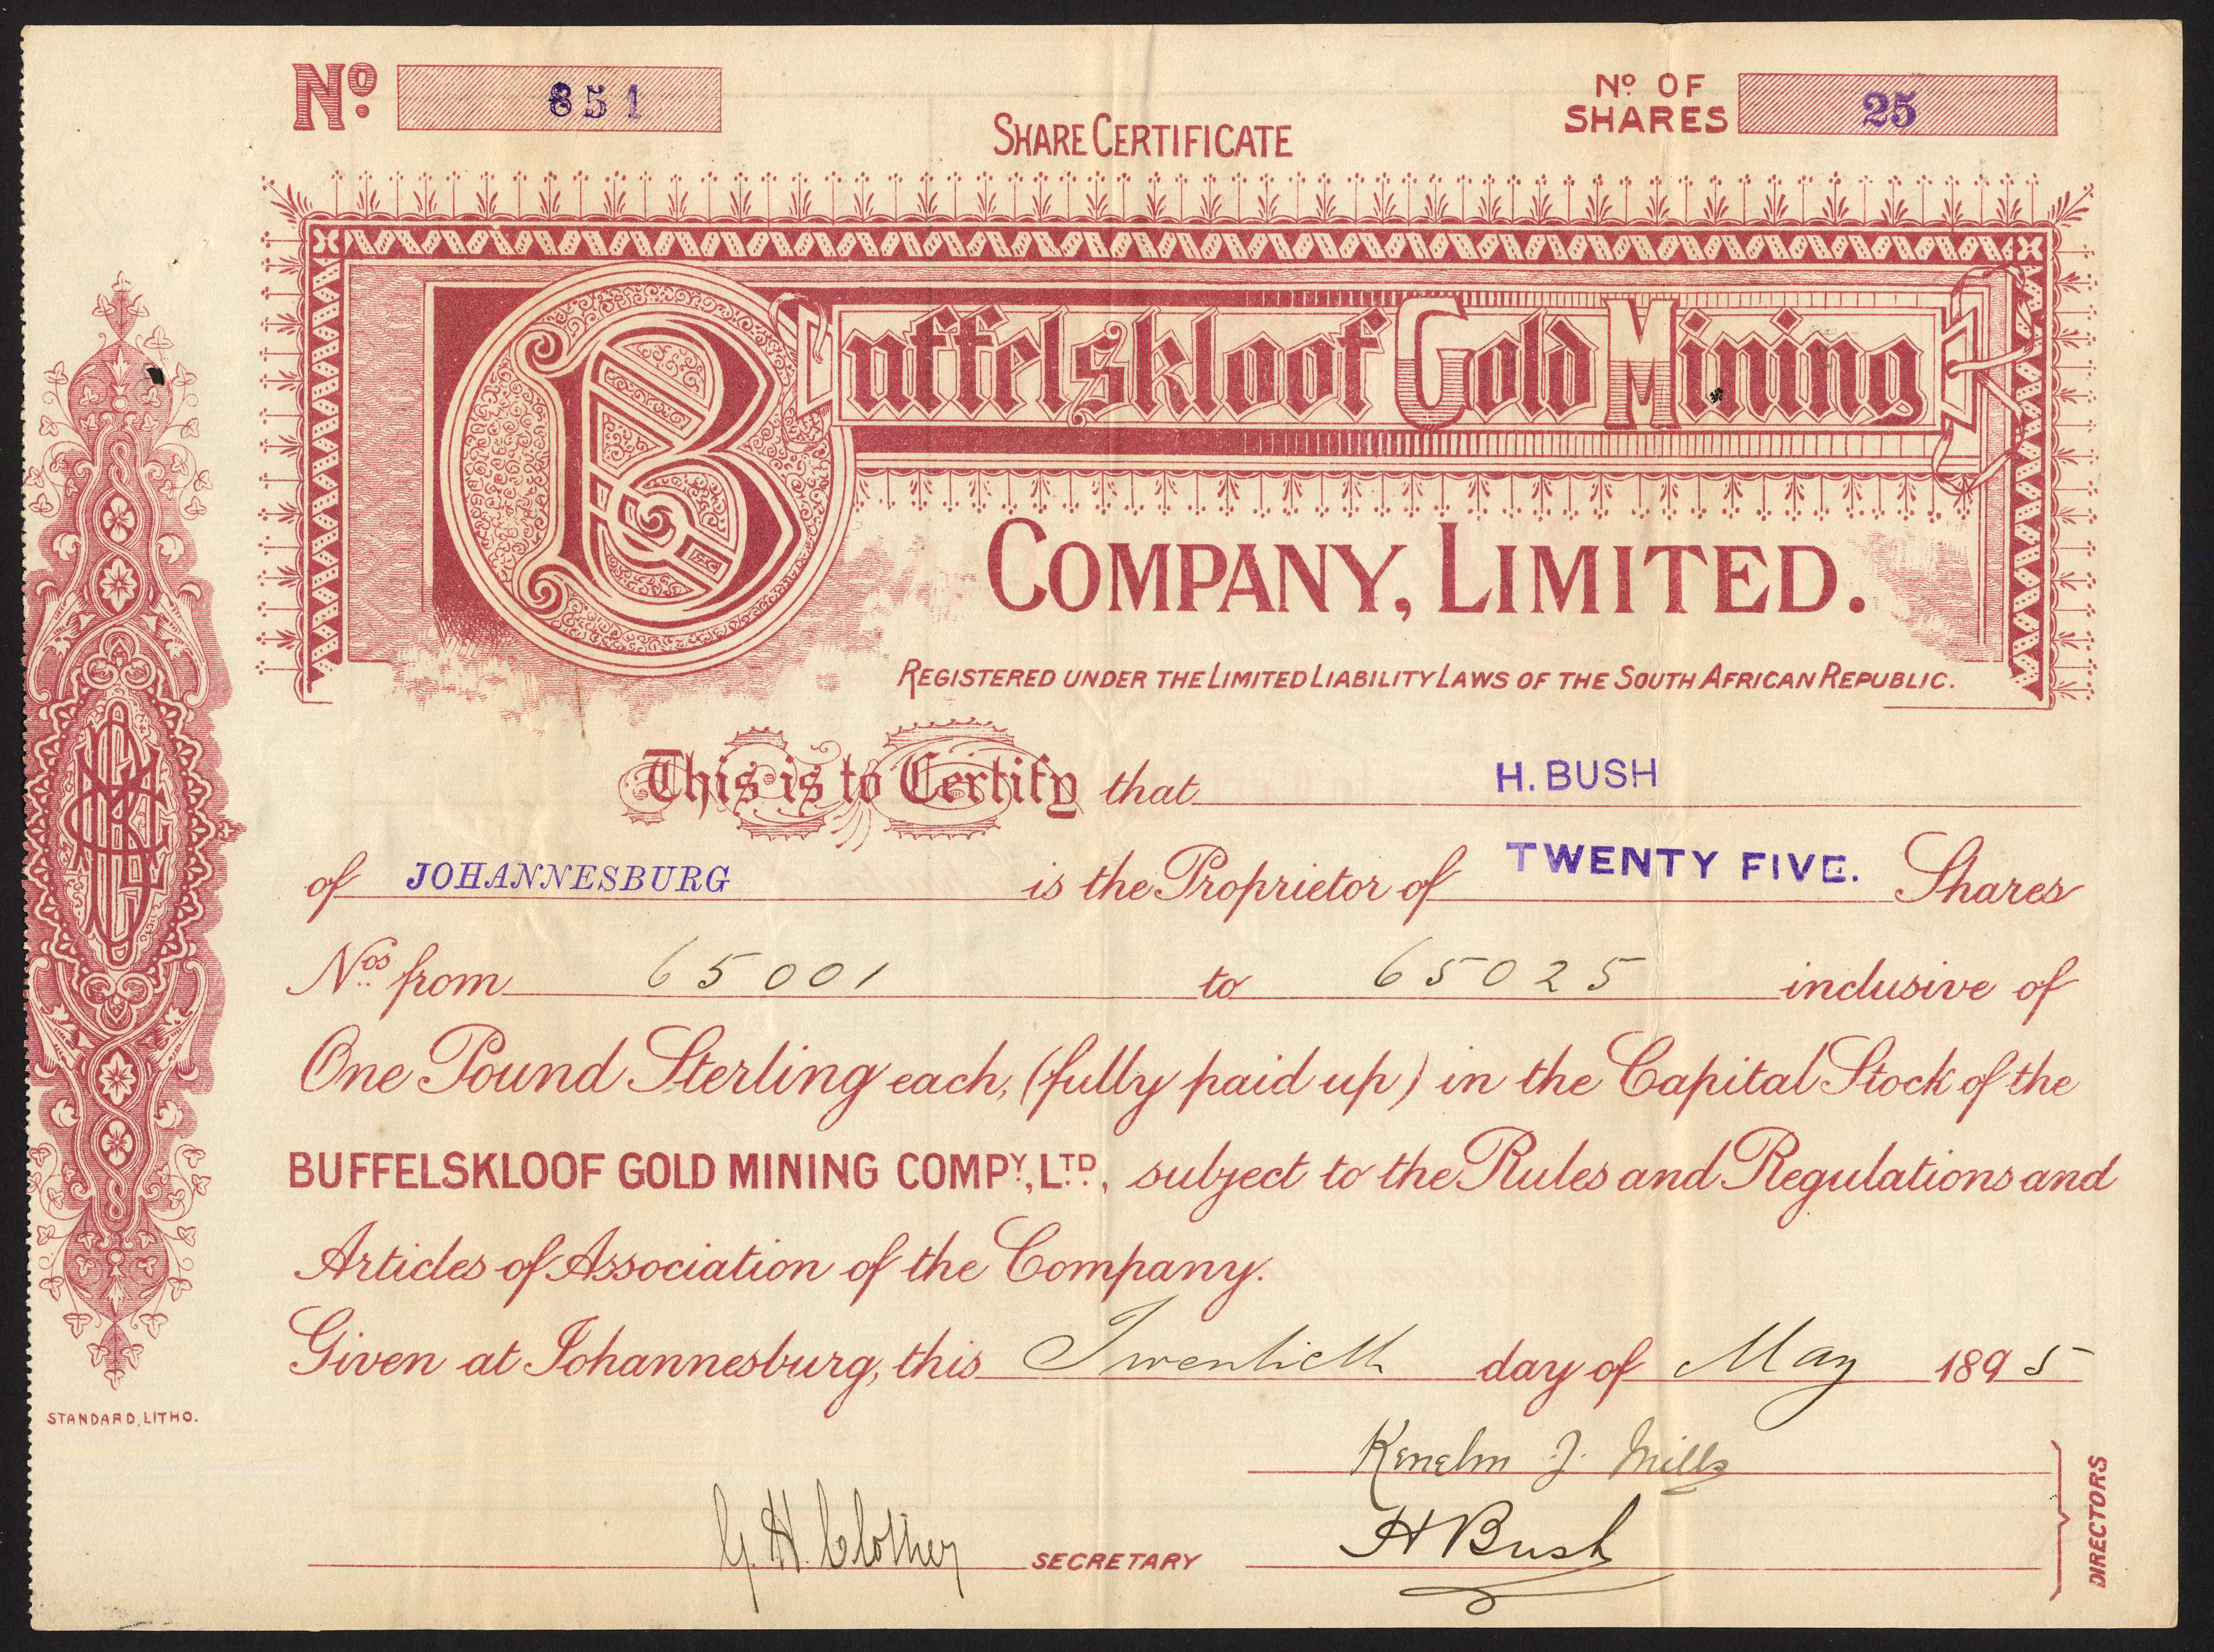 No. 651
No. OF SHARES 25
SHARE CERTIFICATE
Buffelskloof Gold Mining
COMPANY, LIMITED.
REGISTERED UNDER THE LIMITED LIABILITY LAWS OF THE SOUTH AFRICAN REPUBLIC.
This is to Certify that H. BUSH
of JOHANNESBURG is the Proprietor of TWENTY FIVE. Shares
Nos. from 65001 to 65025 inclusive of
One Pound Sterling each, (fully paid up) in the Capital Stock of the
BUFFELSKLOOF GOLD MINING COMPY., LTD., subject to the Rules and Regulations and
Articles of Association of the Company.
Given at Johannesburg, this Twentieth day of May 1895
STANDARD, LITHO.
Kenelm J. Mills
G. H. Clother SECRETARY
H Bush
DIRECTORS